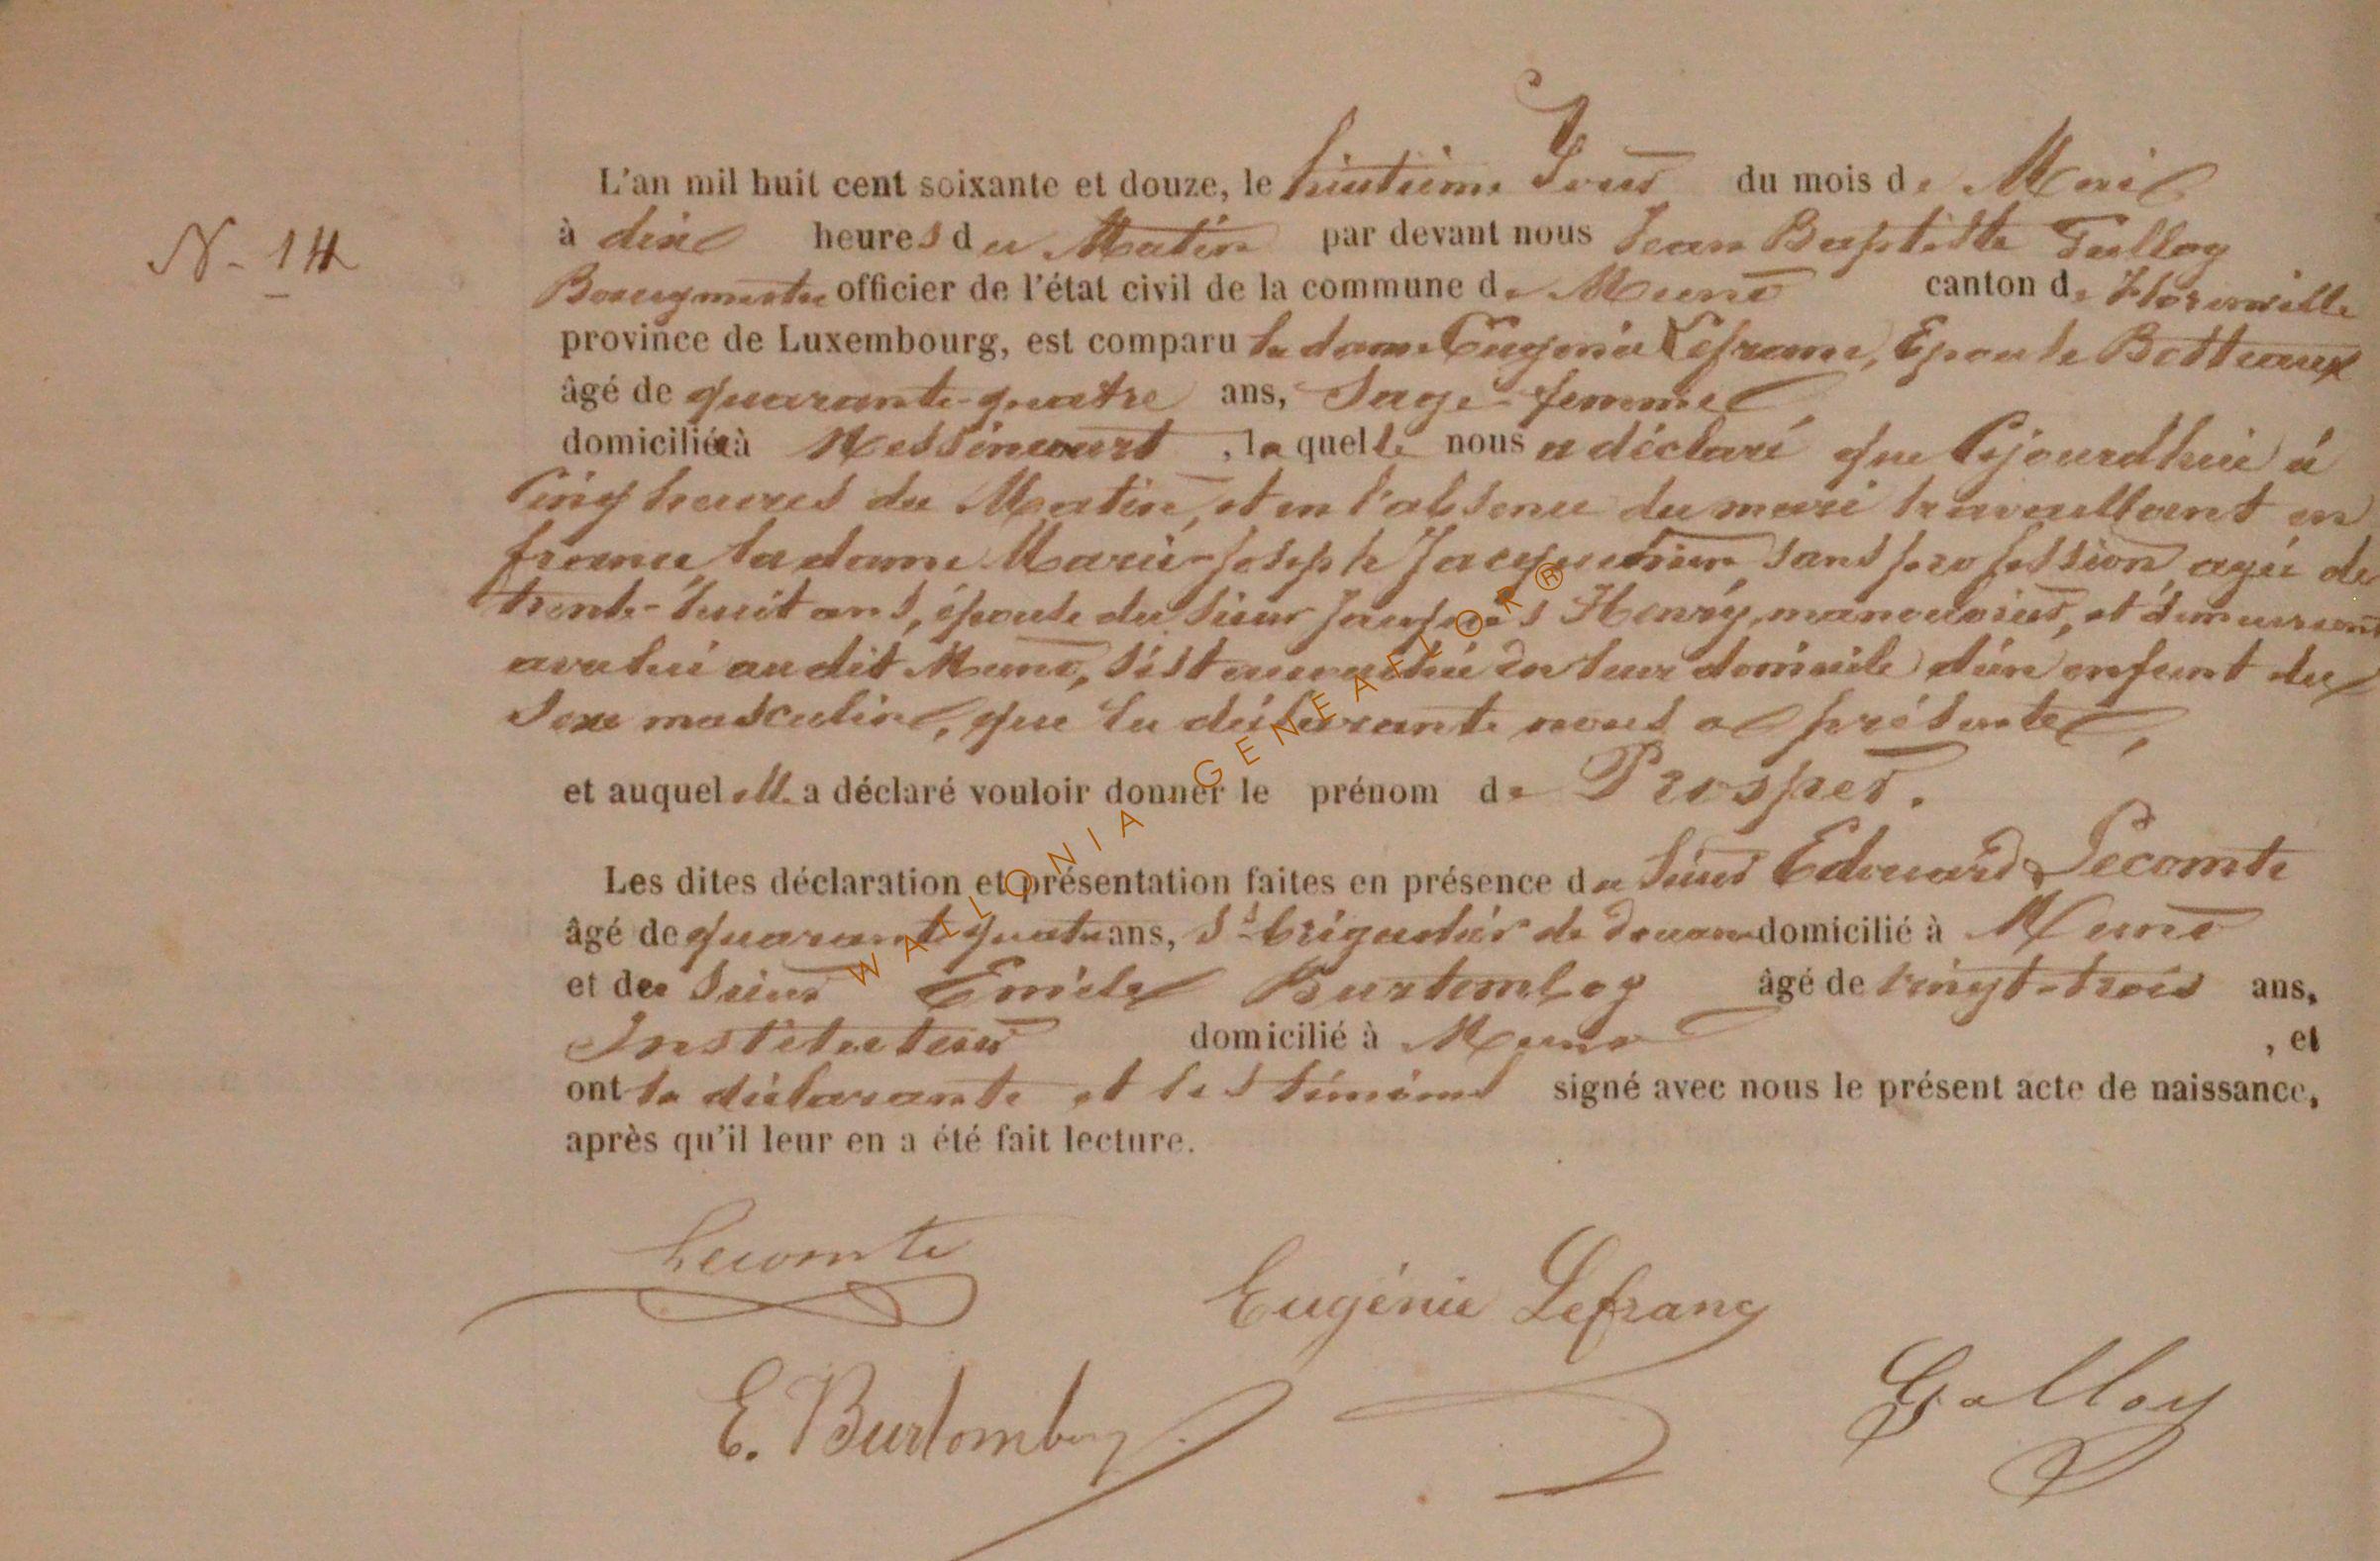 L'an mil huit cent soixante et douze, le huitième Jour du mois de
N- 14
à dix heures du Matin par devant nous Jean Baptiste
Bourgmestre officier de l'état civil de la commune de Muno canton de Florenville
province de Luxembourg, est comparu la dame Eugénie Lefranc, Epouse Botteaux
âgé de quarante-quatre ans, Sage-femme,
domiciliée à Messincourt, laquelle nous a déclaré que Cejourdhui à
Cinq heures du Matin, et en l'absence du mari travaillant en
france la dame Marie-Joseph Jacquemin, sans profession, agée de
trente-huit ans, épouse du Sieur Jacques Henry, manouvrier, et demeurant
avec lui au dit Muno, s'est accouchée en leur domicile d'un enfant du
Sexe masculin, que la déclarante nous a présenté,
et auquel elle a déclaré vouloir donner le prénom de Prosper.
Les dites déclaration et présentation faites en présence du Sieur Edouard Lecomte
âgé de quarante quatre ans, Ss brigadier de Douane domicilié à Muno
et de Sieur Emile Burtomboy âgé de vingt-trois ans,
Instituteur domicilié à Muno, et
ont la déclarante et les témoins signé avec nous le présent acte de naissance,
après qu'il leur en a été fait lecture.
Lecomte
Eugénie Lefranc
E. Burtomboy
Galloy
WALLONIA GENEAFLOR®